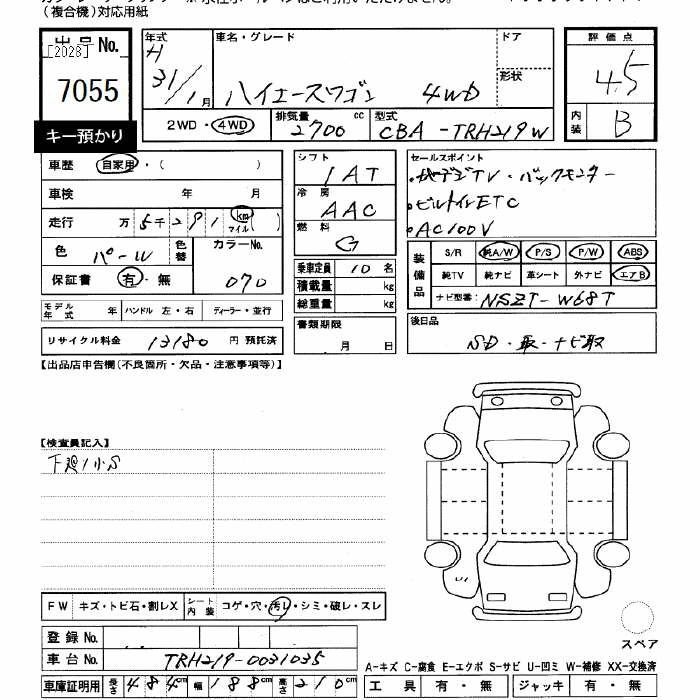 (複合機)対応用紙
出品No.
[2028]
7055
キー預かり
年式 車名・グレード ドア
H31/1月 ハイエースワゴン 4WD 形状
2WD・4WD 排気量 2700 cc 型式 CBA-TRH219W
評価点
4.5
内装 B
車歴 自家用・( )
車検 年 月
走行 万5千291 km マイル ( )
色 パール 色替 カラーNo. 070
保証書 有・無
モデル年式 年 ハンドル 左・右 ディーラー・並行
リサイクル料金 13180 円 預託済
シフト 1AT
冷房 AAC
燃料 G
乗車定員 10 名
積載量 kg
総重量 kg
書類期限
月 日
セールスポイント
・地デジTV・バックモニター
・ビルトインETC
・AC100V
装備品 S/R 純A/W P/S P/W ABS
純TV 純ナビ 革シート 外ナビ エアB
ナビ型番 NSZT-W68T
後日品
SD・取・ナビ取
【出品店申告欄(不良箇所・欠品・注意事項等)】
【検査員記入】
下廻り小S
FW キズ・トビ石・割レX シート内装 コゲ・穴・汚レ・シミ・破レ・スレ
登録No.
車台No. TRH219-0031035
車庫証明用 長さ 484cm 幅 188cm 高さ 210cm
U1
スペア
A-キズ C-腐食 E-エクボ S-サビ U-凹ミ W-補修 XX-交換済
工具 有・無 ジャッキ 有・無